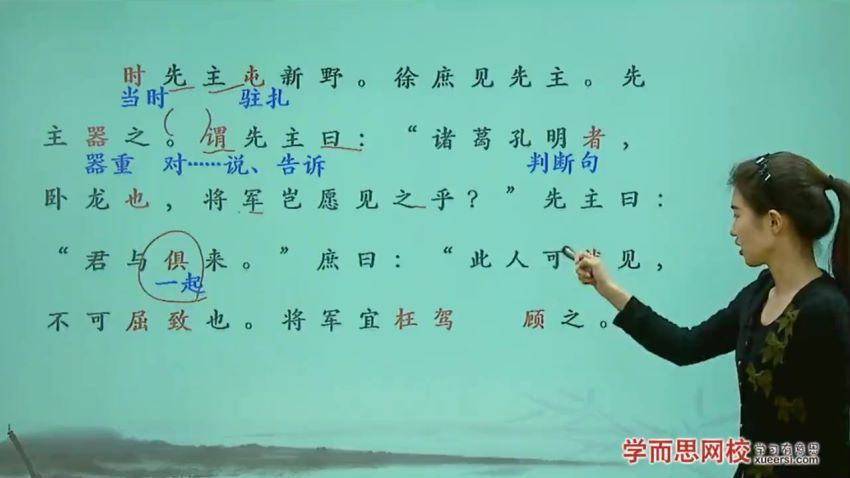 时先主屯新野。徐庶见先主。先
当时 驻扎
主器之。谓先主曰：“诸葛孔明者，
器重 对……说、告诉 判断句
卧龙也，将军岂愿见之乎？”先主曰：
“君与俱来。”庶曰：“此人可就见，
一起
不可屈致也。将军宜枉驾 顾之。
学而思网校 学习有意思
xueersi.com